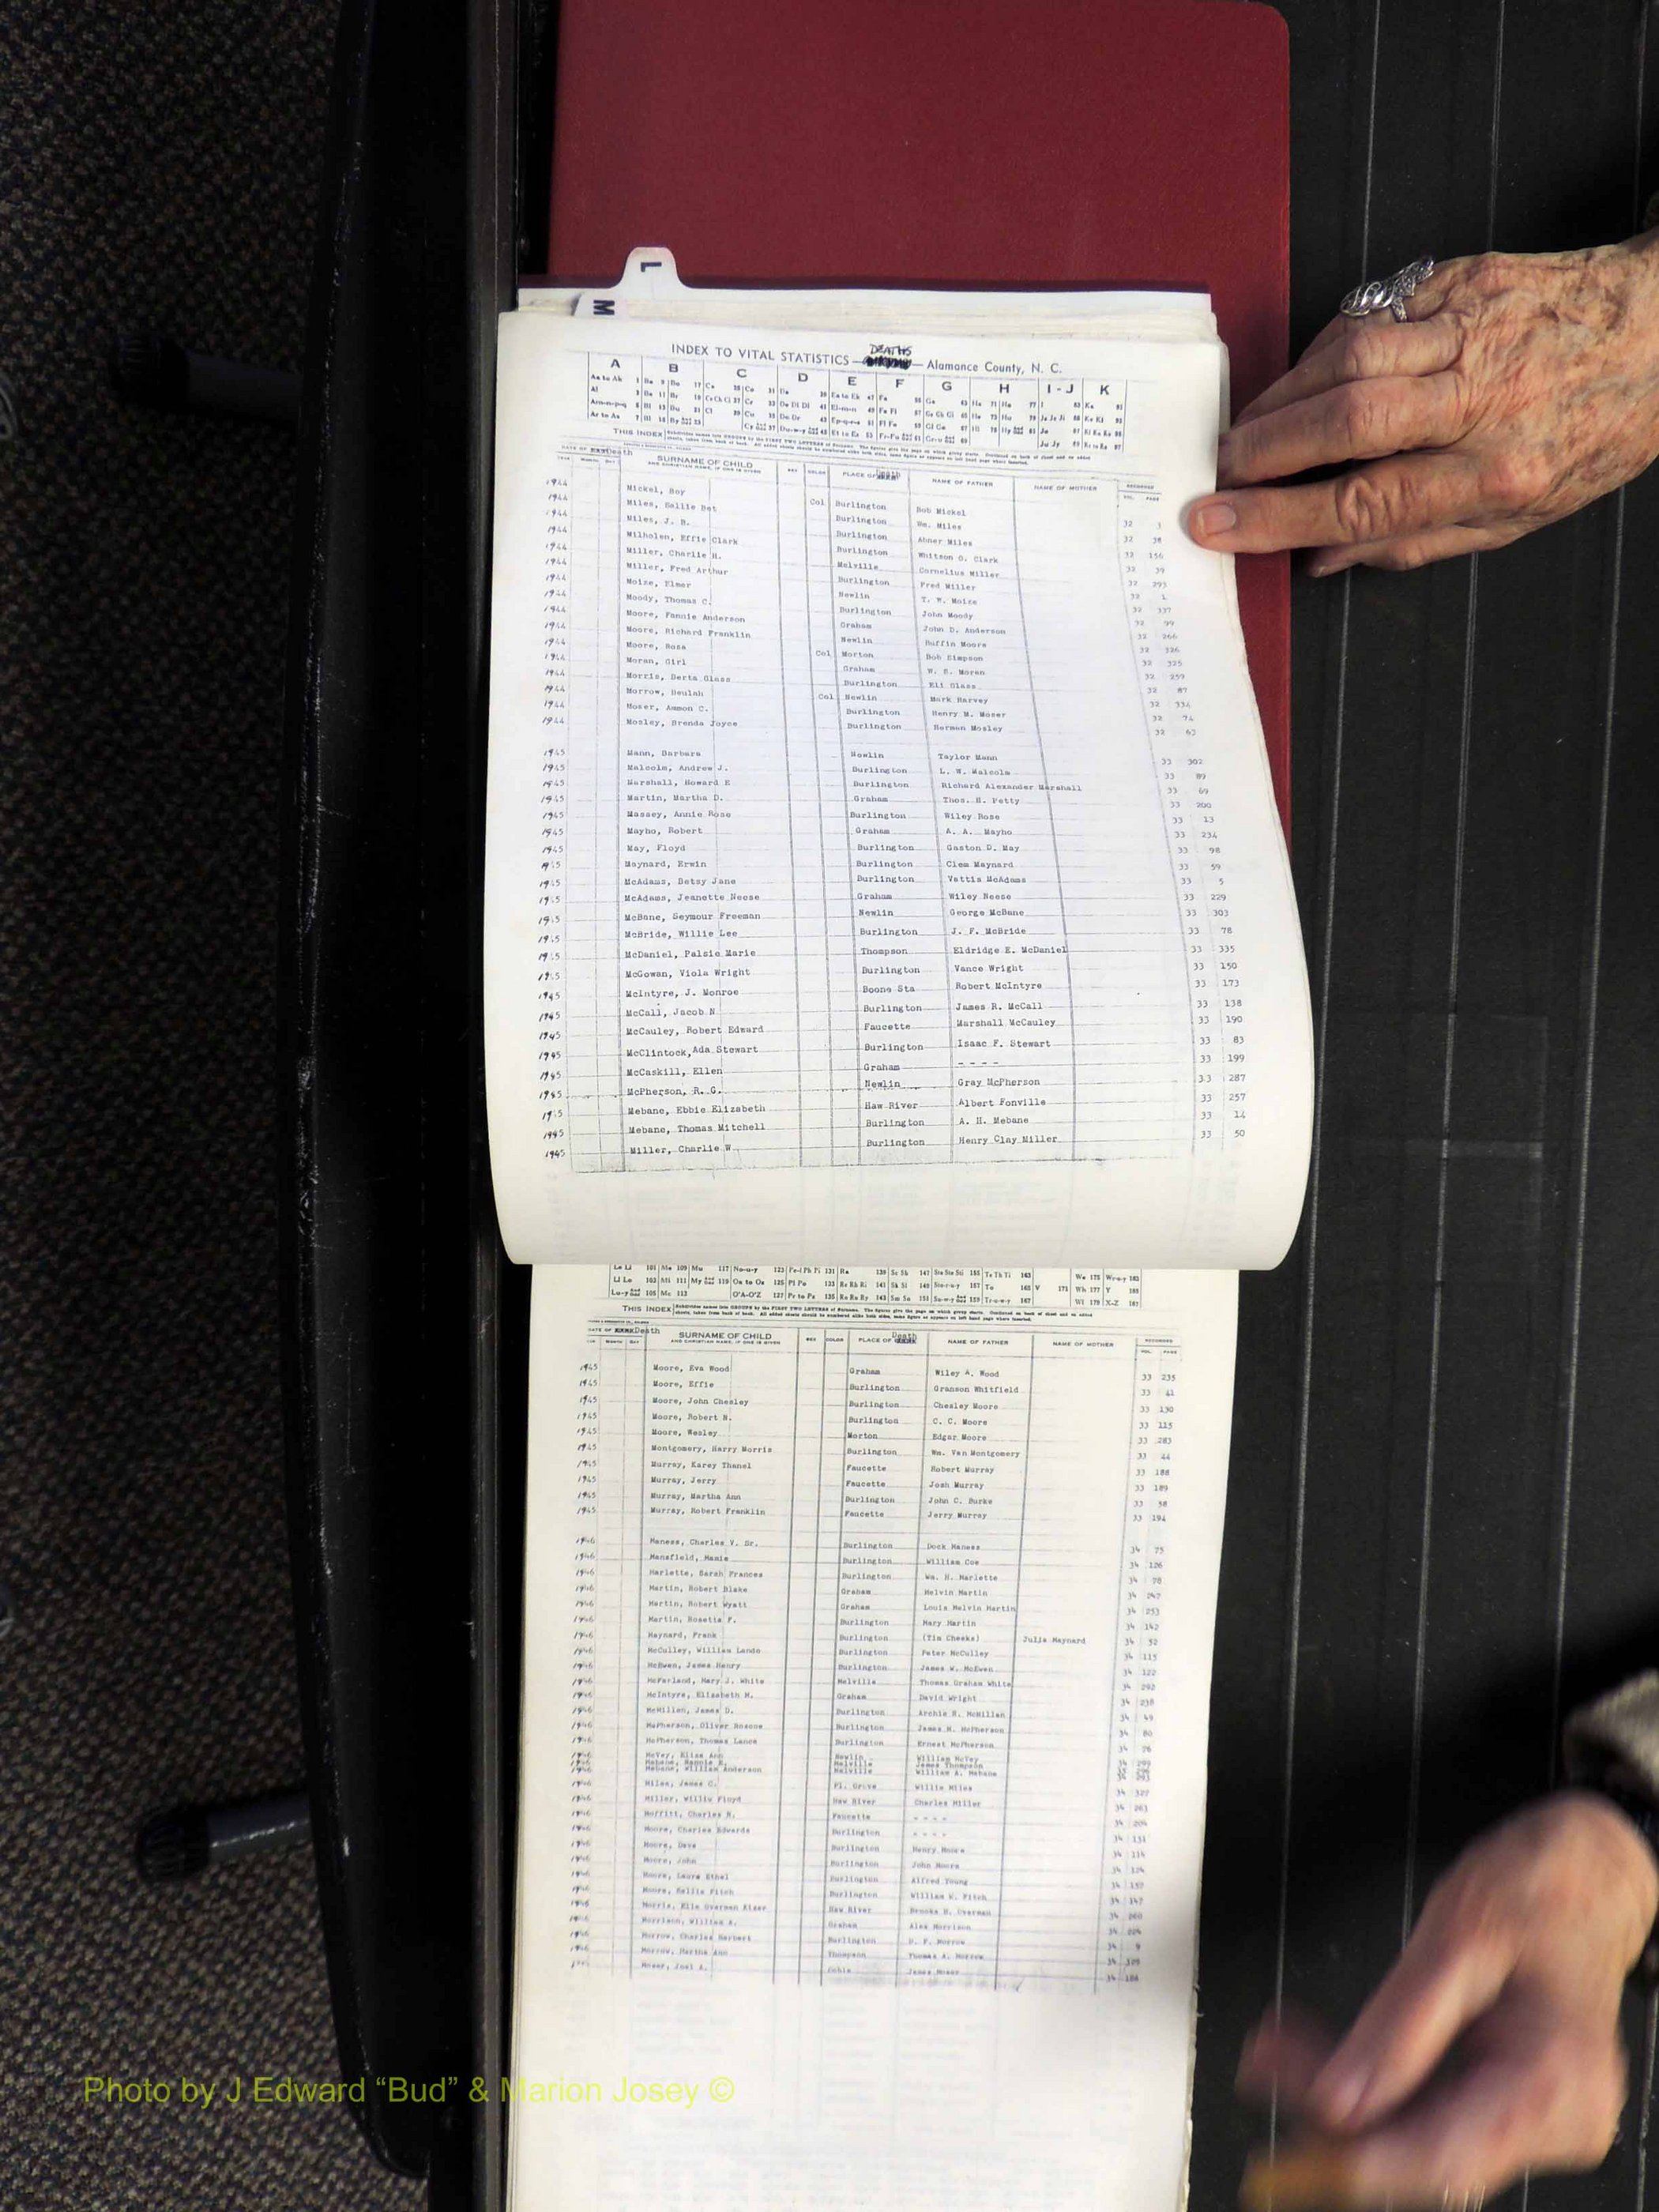 L
M
DEATHS
INDEX TO VITAL STATISTICS — Alamance County, N. C.
A B C D E F G H I - J K
THIS INDEX
DATE OF Death SURNAME OF CHILD AND CHRISTIAN NAME, IF ONE IS GIVEN SEX COLOR PLACE OF Death NAME OF FATHER NAME OF MOTHER RECORDED
YEAR MONTH DAY VOL. PAGE
1944 Mickel, Roy Col Burlington Bob Mickel 32 3
1944 Miles, Sallie Bet Burlington Wm. Miles 32 38
1944 Miles, J. R. Burlington Abner Miles 32 156
1944 Milholen, Effie Clark Burlington Whitson O. Clark 32 39
1944 Miller, Charlie H. Melville Cornelius Miller 32 293
1944 Miller, Fred Arthur Burlington Fred Miller 32 1
1944 Moize, Elmer Newlin T. W. Moize 32 337
1944 Moody, Thomas C. Burlington John Moody 32 99
1944 Moore, Fannie Anderson Graham John D. Anderson 32 266
1944 Moore, Richard Franklin Newlin Ruffin Moore 32 326
1944 Moore, Rosa Col Morton Bob Simpson 32 325
1944 Moran, Girl Graham W. S. Moran 32 259
1944 Morris, Berta Glass Burlington Eli Glass 32 87
1944 Morrow, Beulah Col Newlin Mark Harvey 32 334
1944 Moser, Ammon C. Burlington Henry M. Moser 32 74
1944 Mosley, Brenda Joyce Burlington Herman Mosley 32 63
1945 Mann, Barbara Newlin Taylor Mann 33 302
1945 Malcolm, Andrew J. Burlington L. W. Malcolm 33 89
1945 Marshall, Howard E Burlington Richard Alexander Marshall 33 69
1945 Martin, Martha D. Graham Thos. H. Petty 33 200
1945 Massey, Annie Rose Burlington Wiley Rose 33 13
1945 Mayho, Robert Graham A. A. Mayho 33 234
1945 May, Floyd Burlington Gaston D. May 33 98
1945 Maynard, Erwin Burlington Clem Maynard 33 59
1945 McAdams, Betsy Jane Burlington Vettis McAdams 33 5
1945 McAdams, Jeanette Neese Graham Wiley Neese 33 229
1945 McBane, Seymour Freeman Newlin George McBane 33 303
1945 McBride, Willie Lee Burlington J. F. McBride 33 78
1945 McDaniel, Palsie Marie Thompson Eldridge E. McDaniel 33 335
1945 McGowan, Viola Wright Burlington Vance Wright 33 150
1945 McIntyre, J. Monroe Boone Sta Robert McIntyre 33 173
1945 McCall, Jacob N Burlington James R. McCall 33 138
1945 McCauley, Robert Edward Faucette Marshall McCauley 33 190
1945 McClintock, Ada Stewart Burlington Isaac F. Stewart 33 83
1945 McCaskill, Ellen Graham - - - - 33 199
1945 McPherson, R. G. Newlin Gray McPherson 33 287
1945 Mebane, Ebbie Elizabeth Haw River Albert Fonville 33 257
1945 Mebane, Thomas Mitchell Burlington A. H. Mebane 33 14
1945 Miller, Charlie W. Burlington Henry Clay Miller 33 50
THIS INDEX
DATE OF Death SURNAME OF CHILD AND CHRISTIAN NAME, IF ONE IS GIVEN SEX COLOR PLACE OF Death NAME OF FATHER NAME OF MOTHER RECORDED
1945 Moore, Eva Wood Graham Wiley A. Wood 33 235
1945 Moore, Effie Burlington Granson Whitfield 33 41
1945 Moore, John Chesley Burlington Chesley Moore 33 130
1945 Moore, Robert N. Burlington C. C. Moore 33 115
1945 Moore, Wesley Morton Edgar Moore 33 283
1945 Montgomery, Harry Morris Burlington Wm. Van Montgomery 33 44
1945 Murray, Karey Thanel Faucette Robert Murray 33 188
1945 Murray, Jerry Faucette Josh Murray 33 189
1945 Murray, Martha Ann Burlington John C. Burke 33 58
1945 Murray, Robert Franklin Faucette Jerry Murray 33 194
1946 Maness, Charles V. Sr. Burlington Dock Maness 34 75
1946 Mansfield, Mamie Burlington William Coe 34 126
1946 Marlette, Sarah Frances Burlington Wm. H. Marlette 34 78
1946 Martin, Robert Blake Graham Melvin Martin 34 247
1946 Martin, Robert Wyatt Graham Louis Melvin Martin 34 253
1946 Martin, Rosetta F. Burlington Mary Martin 34 142
1946 Maynard, Frank Burlington (Tim Cheeks) Julia Maynard 34 52
1946 McCulley, William Lando Burlington Peter McCulley 34 115
1946 McEwen, James Henry Burlington James W. McEwen 34 122
1946 McFarland, Mary J. White Melville Thomas Graham White 34 292
1946 McIntyre, Elizabeth M. Graham David Wright 34 238
1946 McMillen, James D. Burlington Archie R. McMillan 34 49
1946 McPherson, Oliver Roscoe Burlington James M. McPherson 34 80
1946 McPherson, Thomas Lance Burlington Ernest McPherson 34 76
1946 McVey, Eliza Ann Newlin William McVey 34
1946 Mebane, Nannie R. Melville James Thompson
1946 Mebane, William Anderson Melville William A. Mebane
1946 Miles, James C. Pl. Grove Willie Miles 34 327
1946 Miller, Willie Floyd Haw River Charles Miller 34 263
1946 Moffitt, Charles R. Faucette - - - - 34 204
1946 Moore, Charles Edwards Burlington - - - - 34 131
1946 Moore, Dave Burlington Henry Moore 34 114
1946 Moore, John Burlington John Moore 34 124
1946 Moore, Laura Ethel Burlington Alfred Young 34 157
1946 Moore, Sallie Fitch Burlington William W. Fitch 34 147
1946 Morris, Elle Overman Kizer Haw River Brooks H. Overman 34 260
1946 Morrison, William A. Graham Alex Morrison 34 224
1946 Morrow, Charles Herbert Burlington D. F. Morrow 34 9
1946 Morrow, Martha Ann Thompson Thomas A. Morrow 34 329
Moser, Joel A. Coble James Moser 34 184
Photo by J Edward “Bud” & Marion Josey ©